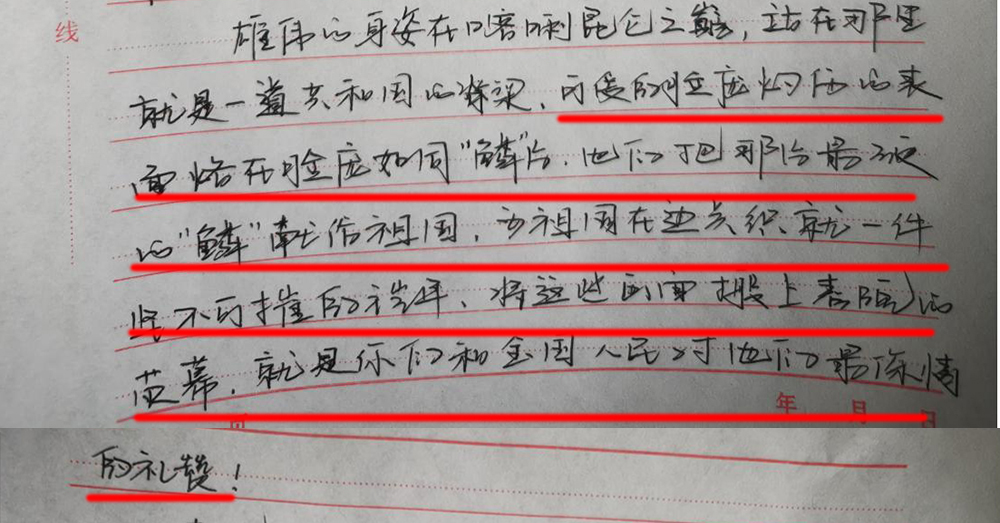 线
雄伟的身姿在喀喇昆仑之巅，站在那里
就是一道共和国的脊梁，可爱的
面烙在如同"鳞"片，他们把那片最硬
的"鳞"献给祖国，为祖国在边关织就一件
坚不可摧的，将这些画面搬上表的
荧幕，就是你们和全国人民对他们最深情
年 月 日
的礼赞！